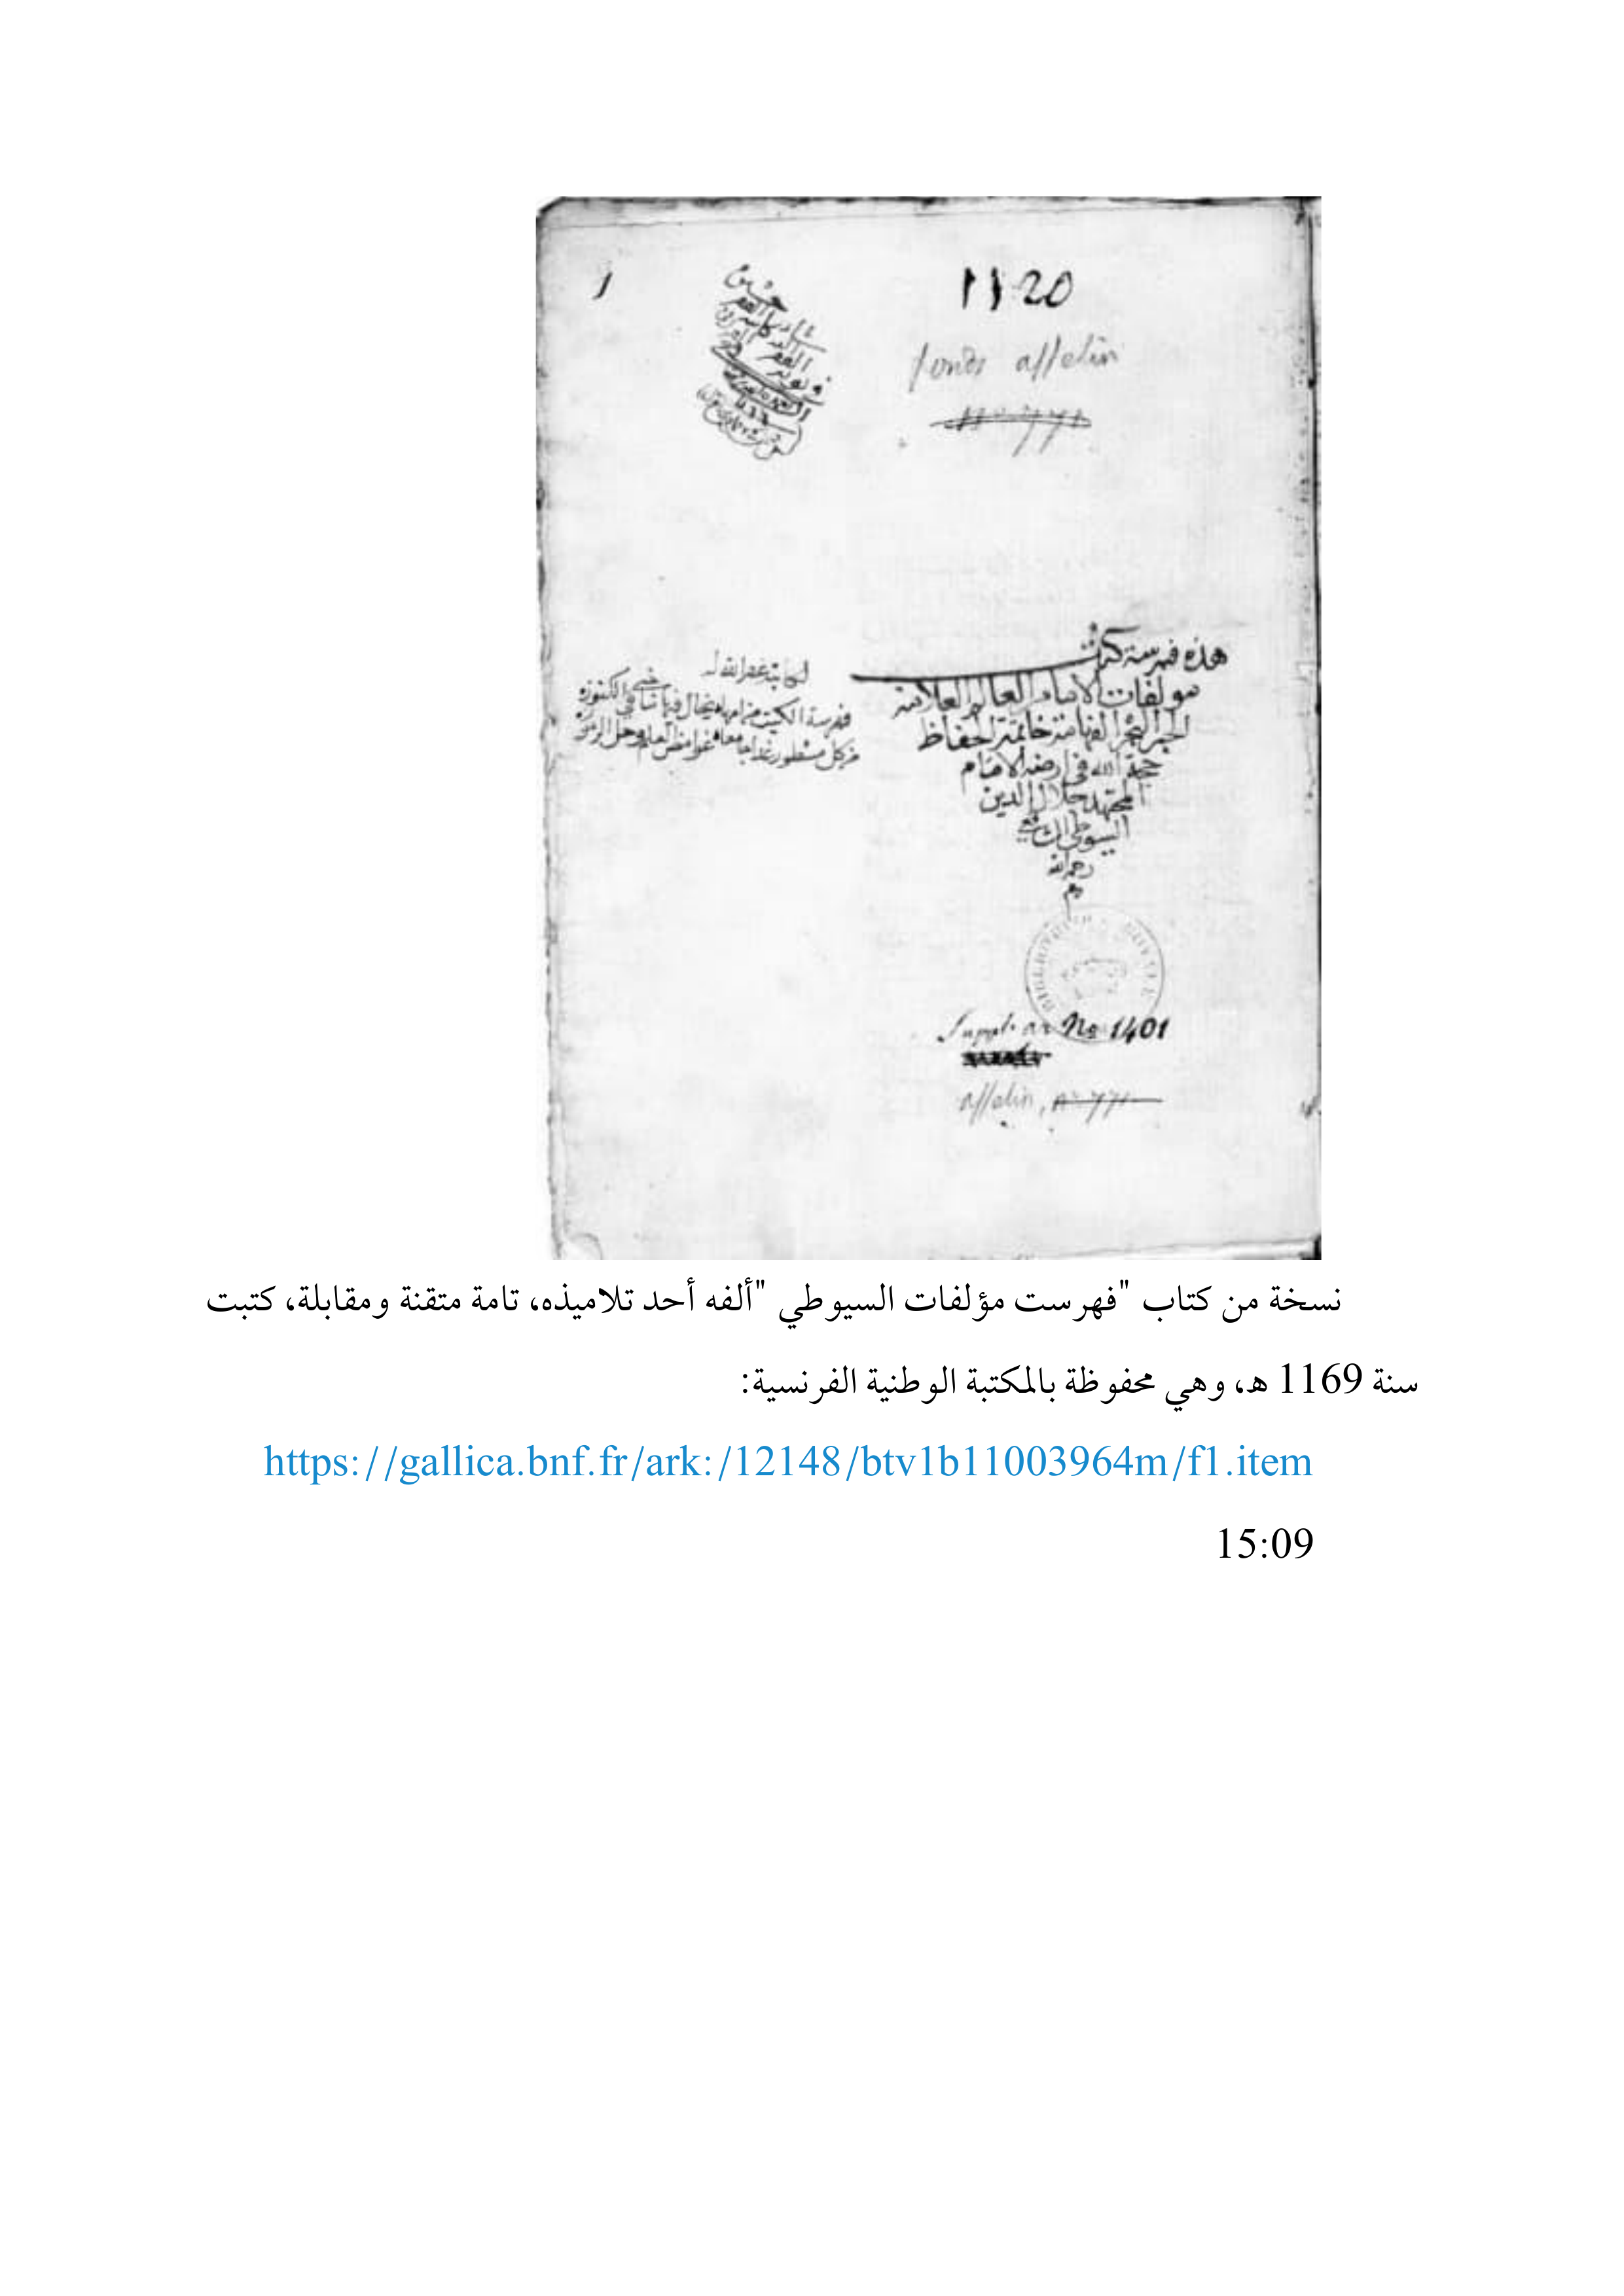 1120
fonds asselin
هذه فهرسة كتب
مولفات الامام العالم العلامة
الحبر البحر الفهامة خاتمة الحفاظ
حجة الله في ارضه الامام
المجتهد جلال الدين
السيوطي الشافعي
رحمه الله
لكاتبه غفر الله له
فهرسة الكتب
من كل مسطور غدا جامعا غوامض العلم وحل الرموز
Suppl. ar. No 1401
asselin,
نسخة من كتاب "فهرست مؤلفات السيوطي "ألفه أحد تلاميذه، تامة متقنة ومقابلة، كتبت
سنة 1169 هـ، وهي محفوظة بالمكتبة الوطنية الفرنسية:
https://gallica.bnf.fr/ark:/12148/btv1b11003964m/f1.item
15:09